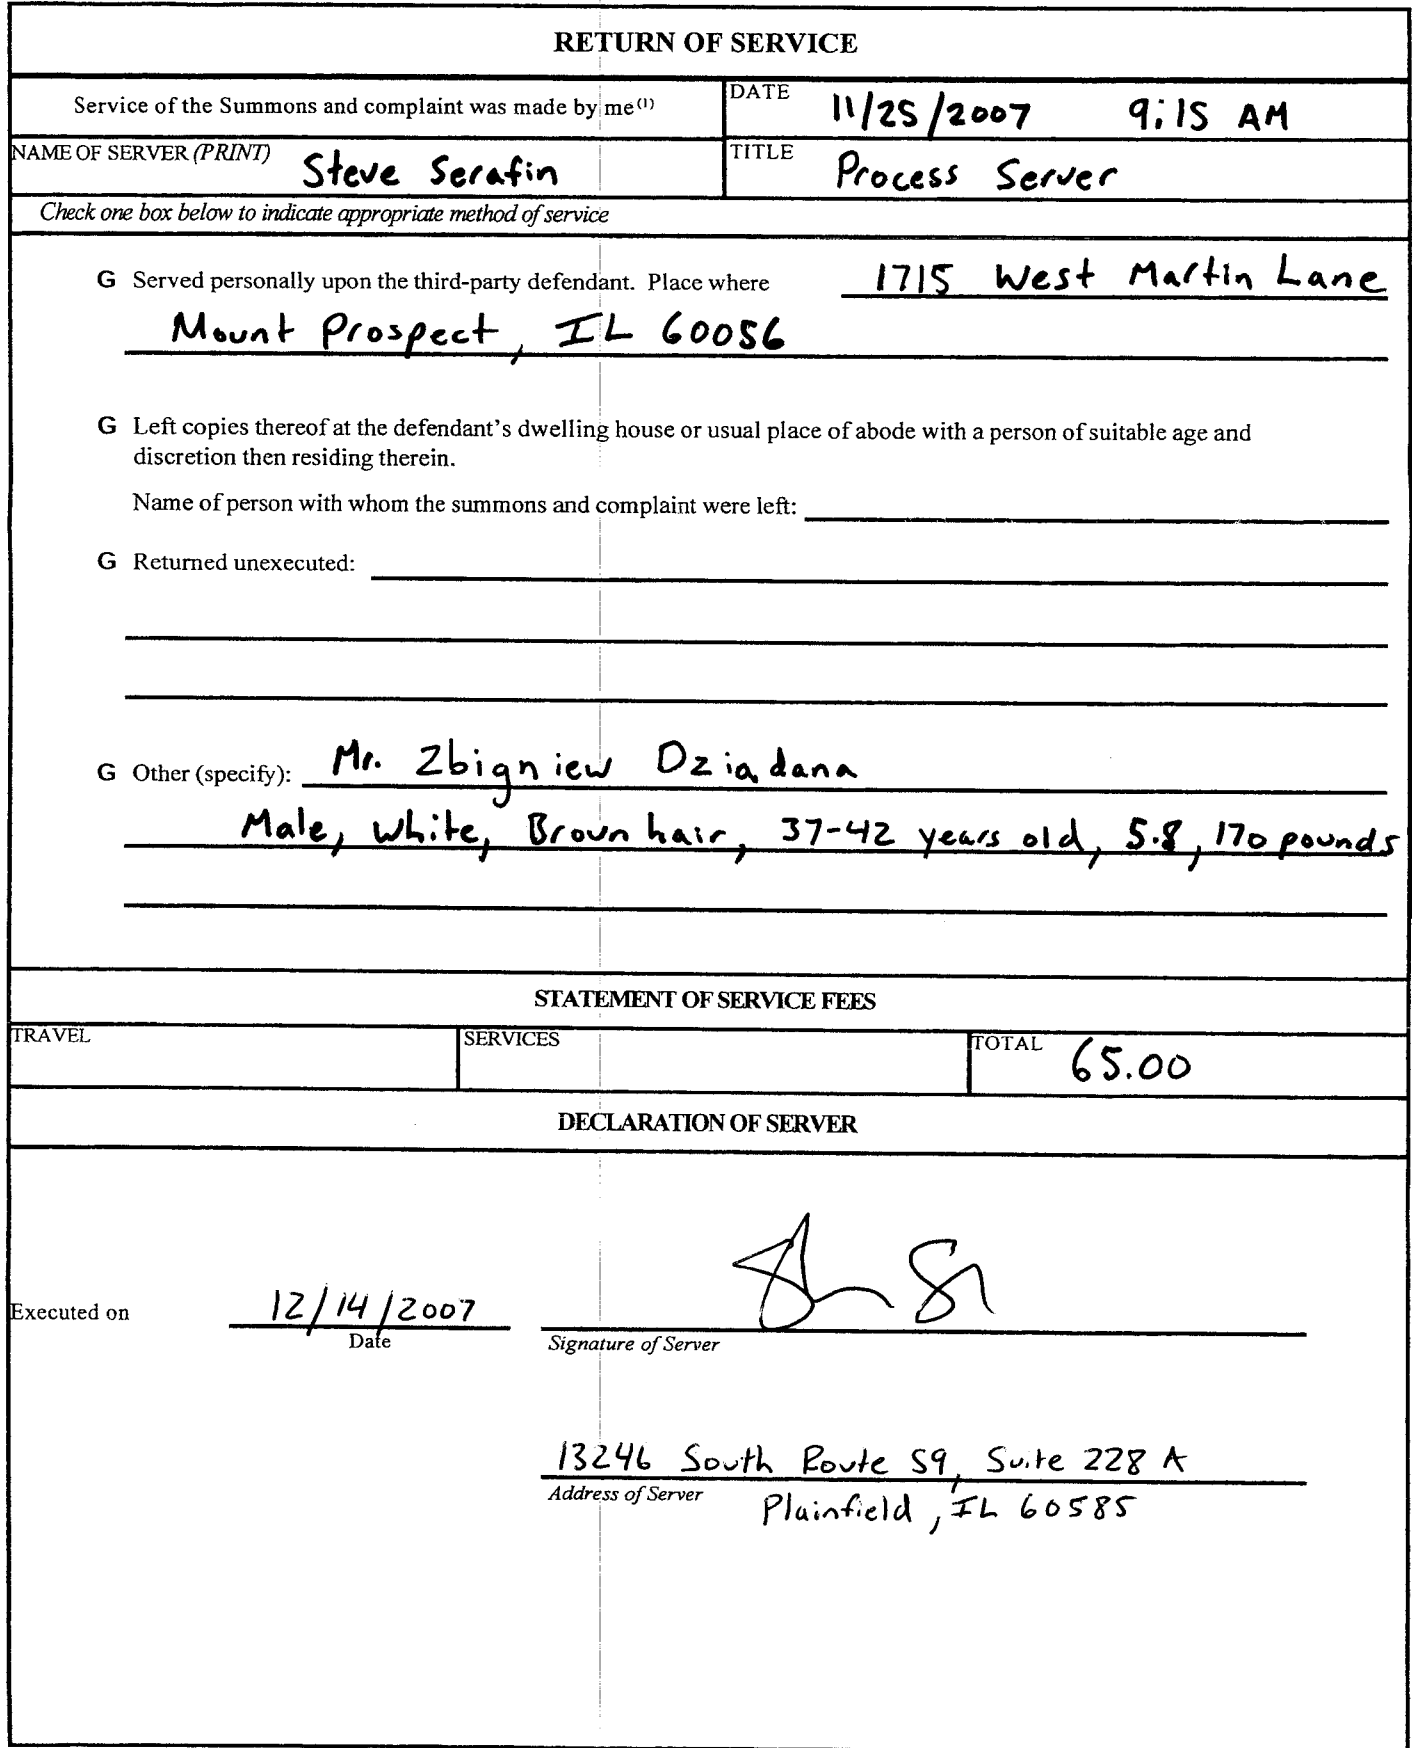 RETURN OF SERVICE
Service of the Summons and complaint was made by me(1)
DATE 11/25/2007 9:15 AM
NAME OF SERVER (PRINT) Steve Serafin
TITLE Process Server
Check one box below to indicate appropriate method of service
G Served personally upon the third-party defendant. Place where 1715 West Martin Lane
Mount Prospect, IL 60056
G Left copies thereof at the defendant's dwelling house or usual place of abode with a person of suitable age and
discretion then residing therein.
Name of person with whom the summons and complaint were left:
G Returned unexecuted:
G Other (specify): Mr. Zbigniew Dziadana
Male, white, Brown hair, 37-42 years old, 5.8, 170 pounds
STATEMENT OF SERVICE FEES
TRAVEL
SERVICES
TOTAL 65.00
DECLARATION OF SERVER
Executed on 12/14/2007
Date
Signature of Server
13246 South Route 59, Suite 228 A
Address of Server
Plainfield, IL 60585